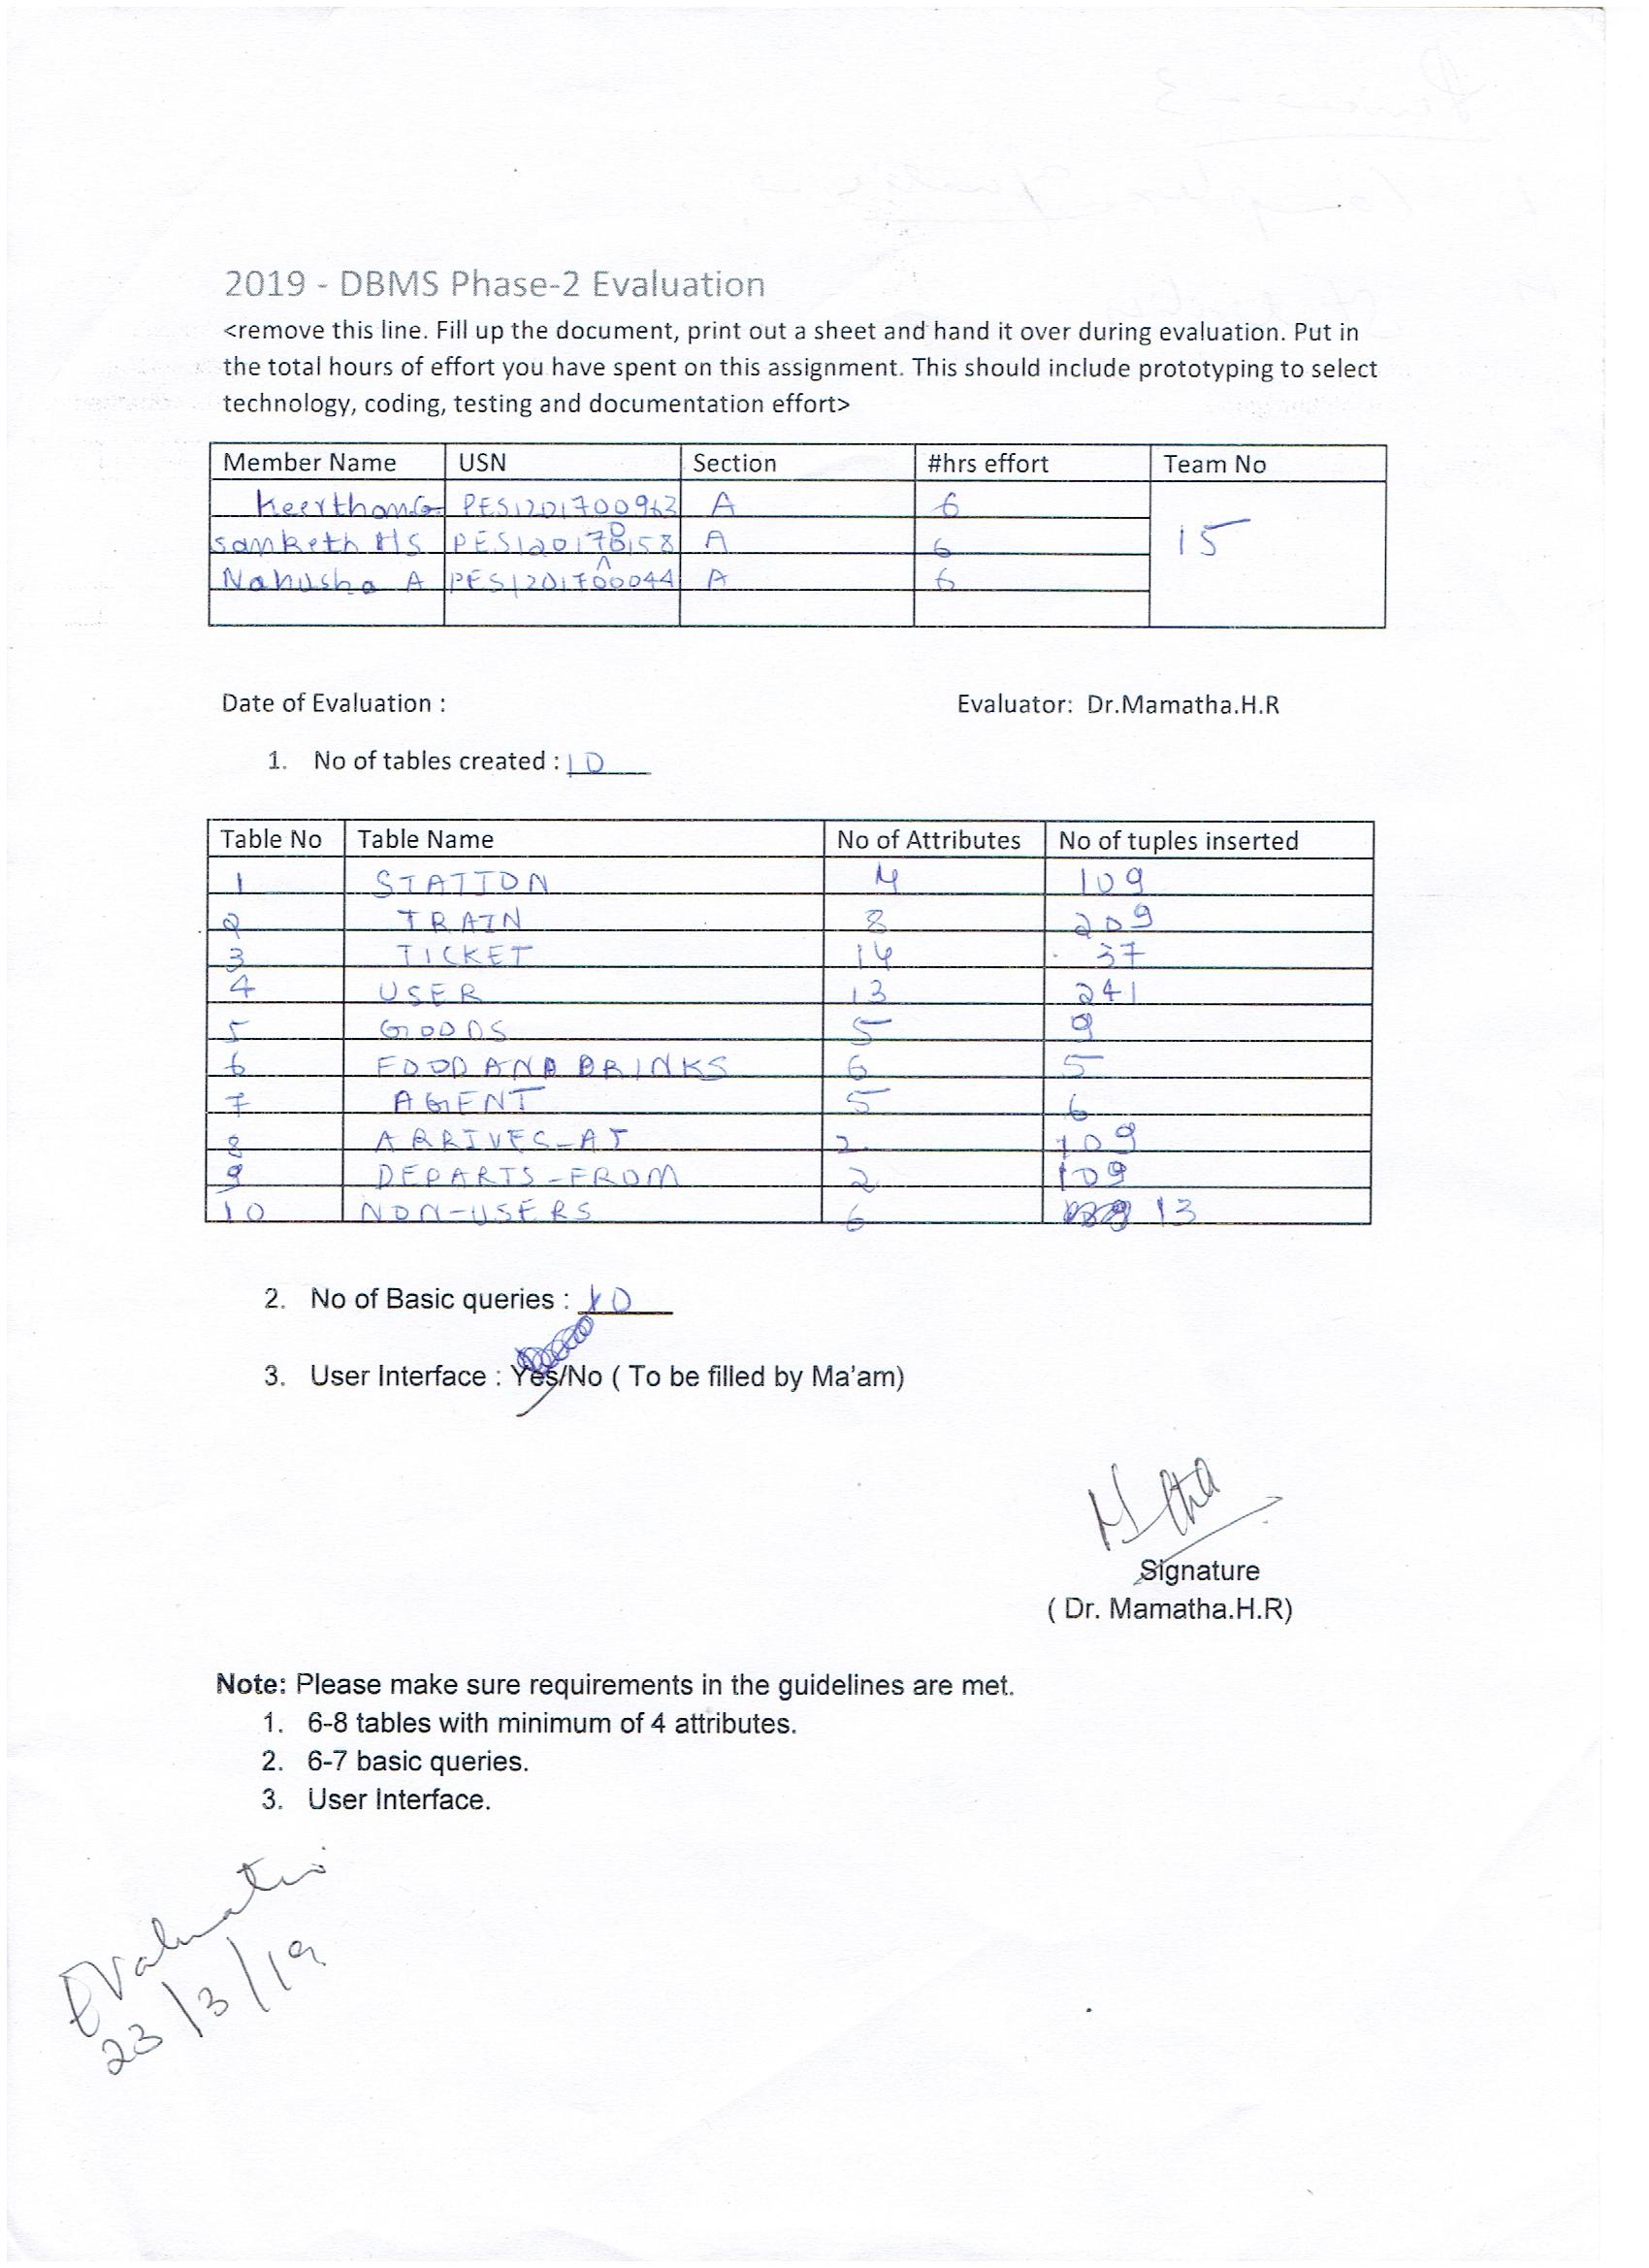 2019 - DBMS Phase-2 Evaluation
<remove this line. Fill up the document, print out a sheet and hand it over during evaluation. Put in
the total hours of effort you have spent on this assignment. This should include prototyping to select
technology, coding, testing and documentation effort>
Member Name USN Section #hrs effort Team No
Keerthan G PES1201700963 A 6
15
Sanketh HS A 6
Nahusha A PES1201700044 A 6
Date of Evaluation : Evaluator: Dr.Mamatha.H.R
1. No of tables created : 10
Table No Table Name No of Attributes No of tuples inserted
1 STATION 4 109
2 TRAIN 8 209
3 TICKET 14 37
4 USER 13 241
5 GOODS 5 9
6 FOOD AND DRINKS 6 5
7 AGENT 5 6
8 ARRIVES-AT 2 109
9 DEPARTS-FROM 2 109
10 NON-USERS 6 13
2. No of Basic queries : 10
3. User Interface : Yes/No ( To be filled by Ma'am)
Signature
( Dr. Mamatha.H.R)
Note: Please make sure requirements in the guidelines are met.
1. 6-8 tables with minimum of 4 attributes.
2. 6-7 basic queries.
3. User Interface.
Evaluation
23/3/19